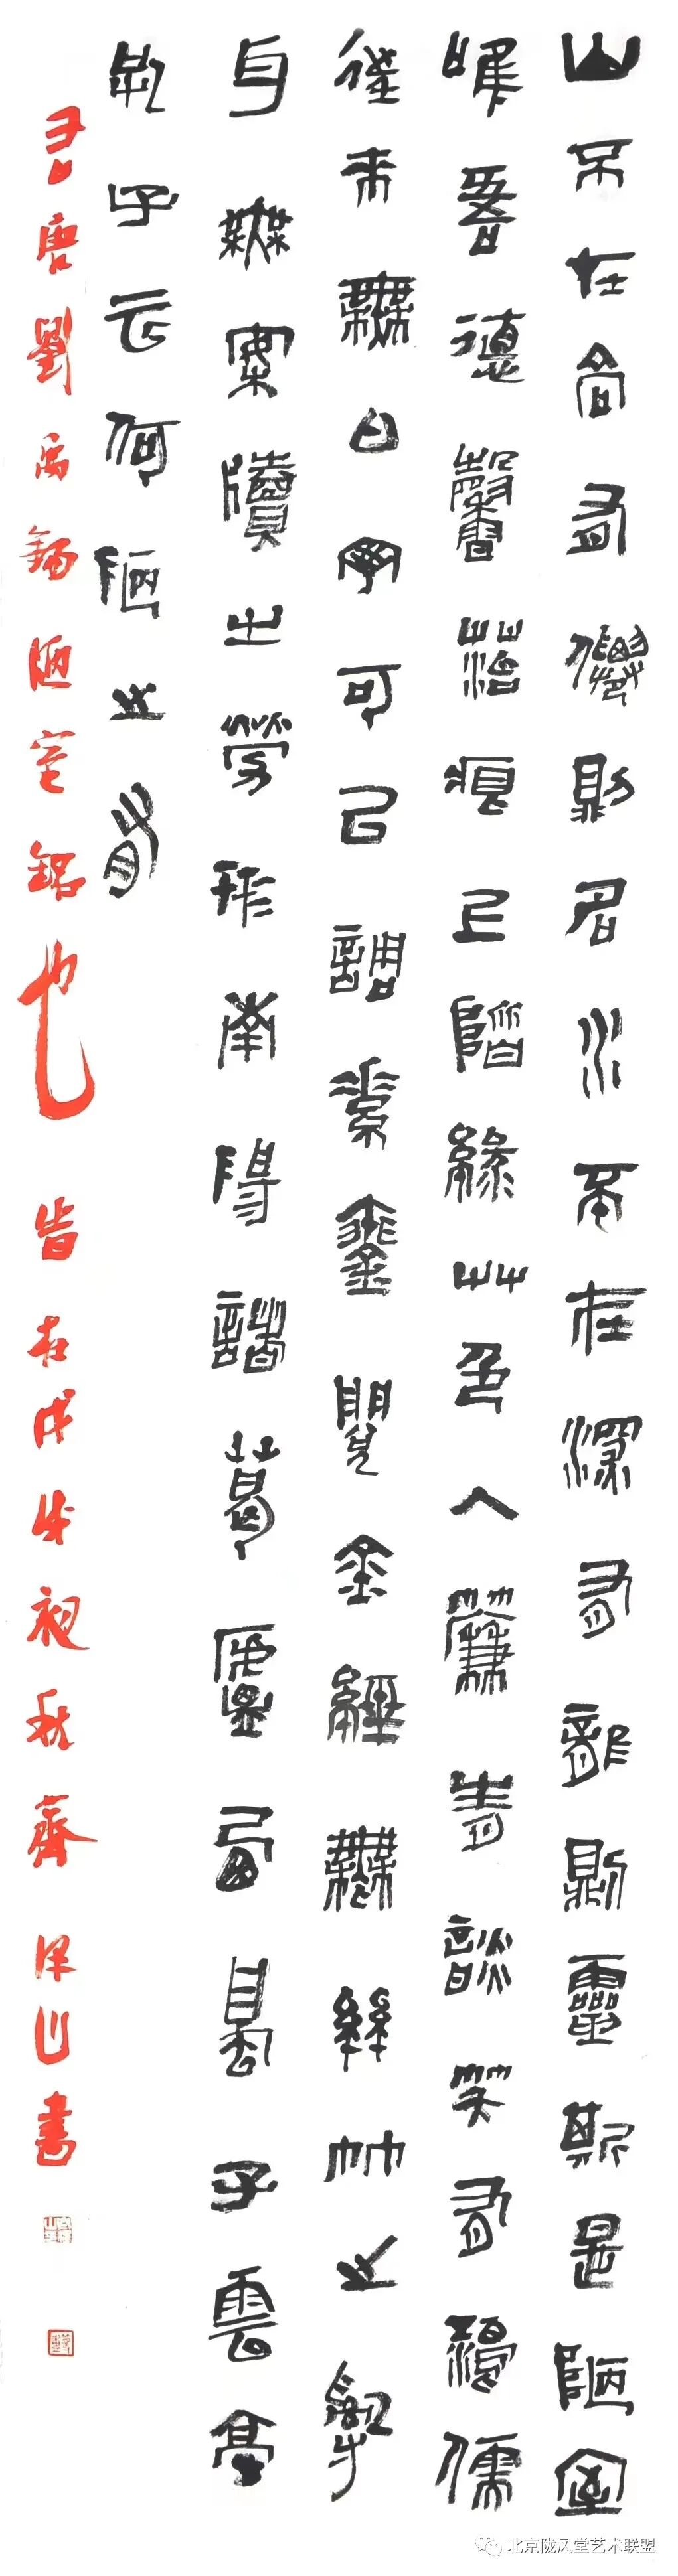 山不在高有僊則名水不在深有龍則靈斯是陋室
唯吾德馨苔痕上階綠艸色入簾青談笑有鴻儒
往來無白丁可以調素琴閱金經無絲竹之亂
耳無案牘之勞形南陽諸葛廬西蜀子雲亭
孔子云何陋之有
右唐劉禹錫陋室銘也 旹在戊戌秋齋山書
北京陇风堂艺术联盟